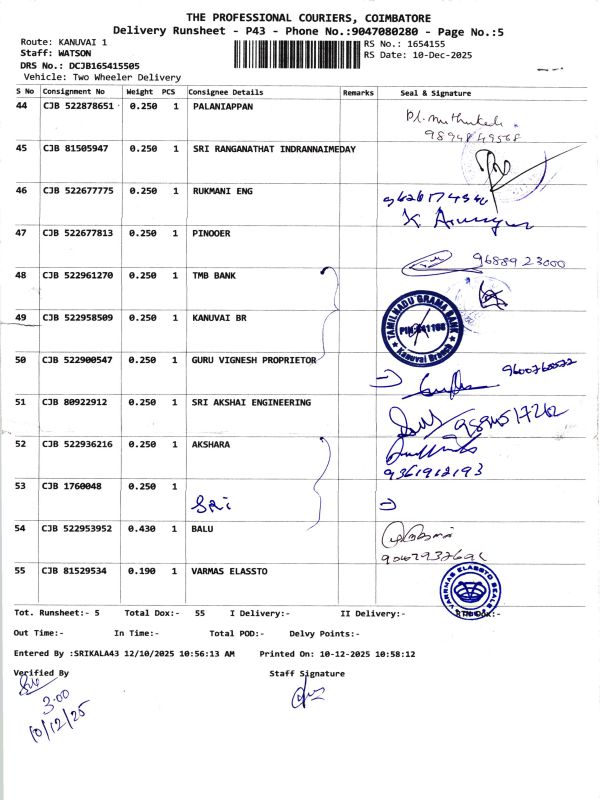 THE PROFESSIONAL COURIERS, COIMBATORE
Delivery Runsheet - P43 - Phone No.:9047080280 - Page No.:5
Route: KANUVAI 1
RS No.: 1654155
Staff: WATSON
RS Date: 10-Dec-2025
DRS No.: DCJB165415505
Vehicle: Two Wheeler Delivery
S No Consignment No Weight PCS Consignee Details Remarks Seal & Signature
44 CJB 522878651 0.250 1 PALANIAPPAN
9894849568
45 CJB 81505947 0.250 1 SRI RANGANATHAT INDRANNAIMEDAY
46 CJB 522677775 0.250 1 RUKMANI ENG
47 CJB 522677813 0.250 1 PINOOER
9688923000
48 CJB 522961270 0.250 1 TMB BANK
49 CJB 522958509 0.250 1 KANUVAI BR
TAMILNADU GRAMA BANK
Kanuvai Branch
50 CJB 522900547 0.250 1 GURU VIGNESH PROPRIETOR
51 CJB 80922912 0.250 1 SRI AKSHAI ENGINEERING
52 CJB 522936216 0.250 1 AKSHARA
9361912193
53 CJB 1760048 0.250 1
SRi
54 CJB 522953952 0.430 1 BALU
55 CJB 81529534 0.190 1 VARMAS ELASSTO
Tot. Runsheet:- 5 Total Dox:- 55 I Delivery:- II Delivery:- RTN Dox:-
Out Time:- In Time:- Total POD:- Delvy Points:-
Entered By :SRIKALA43 12/10/2025 10:56:13 AM Printed On: 10-12-2025 10:58:12
Verified By Staff Signature
3.00
10/12/25